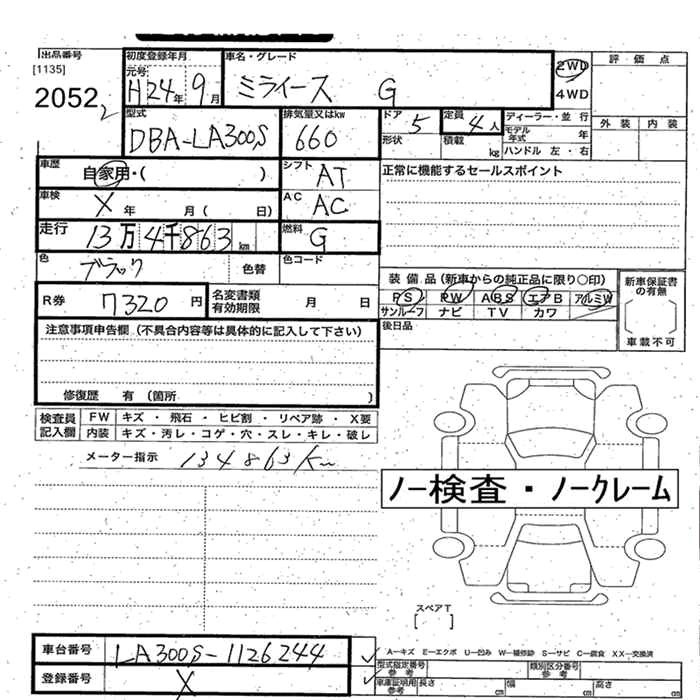 出品番号
[1135]
2052 2
初度登録年月
元号
H24年 9月
車名・グレード
ミライース G
2WD
4WD
評価点
外装 内装
型式
DBA-LA300S
排気量又はkw
660
ドア 5
形状
定員 4人
積載 kg
ディーラー・並行
モデル年式 年
ハンドル 左・右
車歴
自家用・( )
シフト AT
正常に機能するセールスポイント
車検
X 年 月( 日)
AC AC
走行
13万4千863km
燃料 G
色
ブラック
色替
色コード
装備品(新車からの純正品に限り○印)
PS PW ABS エアB アルミW
サンルーフ ナビ TV カワ
新車保証書の有無
車載不可
後日品
R券 7320円
名変書類有効期限 月 日
注意事項申告欄(不具合内容等は具体的に記入して下さい)
修復歴 有(箇所 )
検査員記入欄
FW キズ・飛石・ヒビ割・リペア跡・X要
内装 キズ・汚レ・コゲ・穴・スレ・キレ・破レ
メーター指示 134863Km
ノー検査・ノークレーム
スペアT
[ ]
車台番号 LA300S-1126244
登録番号 X
A=キズ E=エクボ U=凹み W=補修跡 S=サビ C=腐食 XX=交換済
型式指定番号
参考
類別区分番号
車庫証明用
参考
長さ cm 幅 cm 高さ cm